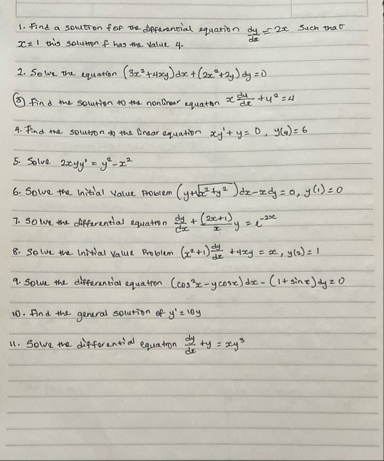 1. Find a solution for the differential equation dy/dx = 2x such that
x=1 this solution f has the value 4.
2. Solve the equation (3x²+4xy)dx+(2x²+2y)dy=0
③ Find the solution to the nonlinear equation x dy/dx + y² = 4
4. Find the solution to the linear equation xy'+y=0, y(4)=6
5. Solve 2xyy' = y²-x²
6. Solve the Initial Value Problem (y+√x²+y²)dx-xdy=0, y(1)=0
7. Solve the differential equation dy/dx + (2x+1)/x y = e⁻²ˣ
8. Solve the Initial Value Problem (x²+1)dy/dx +4xy = x, y(2)=1
9. Solve the differential equation (cos²x-ycosx)dx-(1+sinx)dy=0
10. Find the general solution of y'=10y
11. Solve the differential equation dy/dx +y = xy³